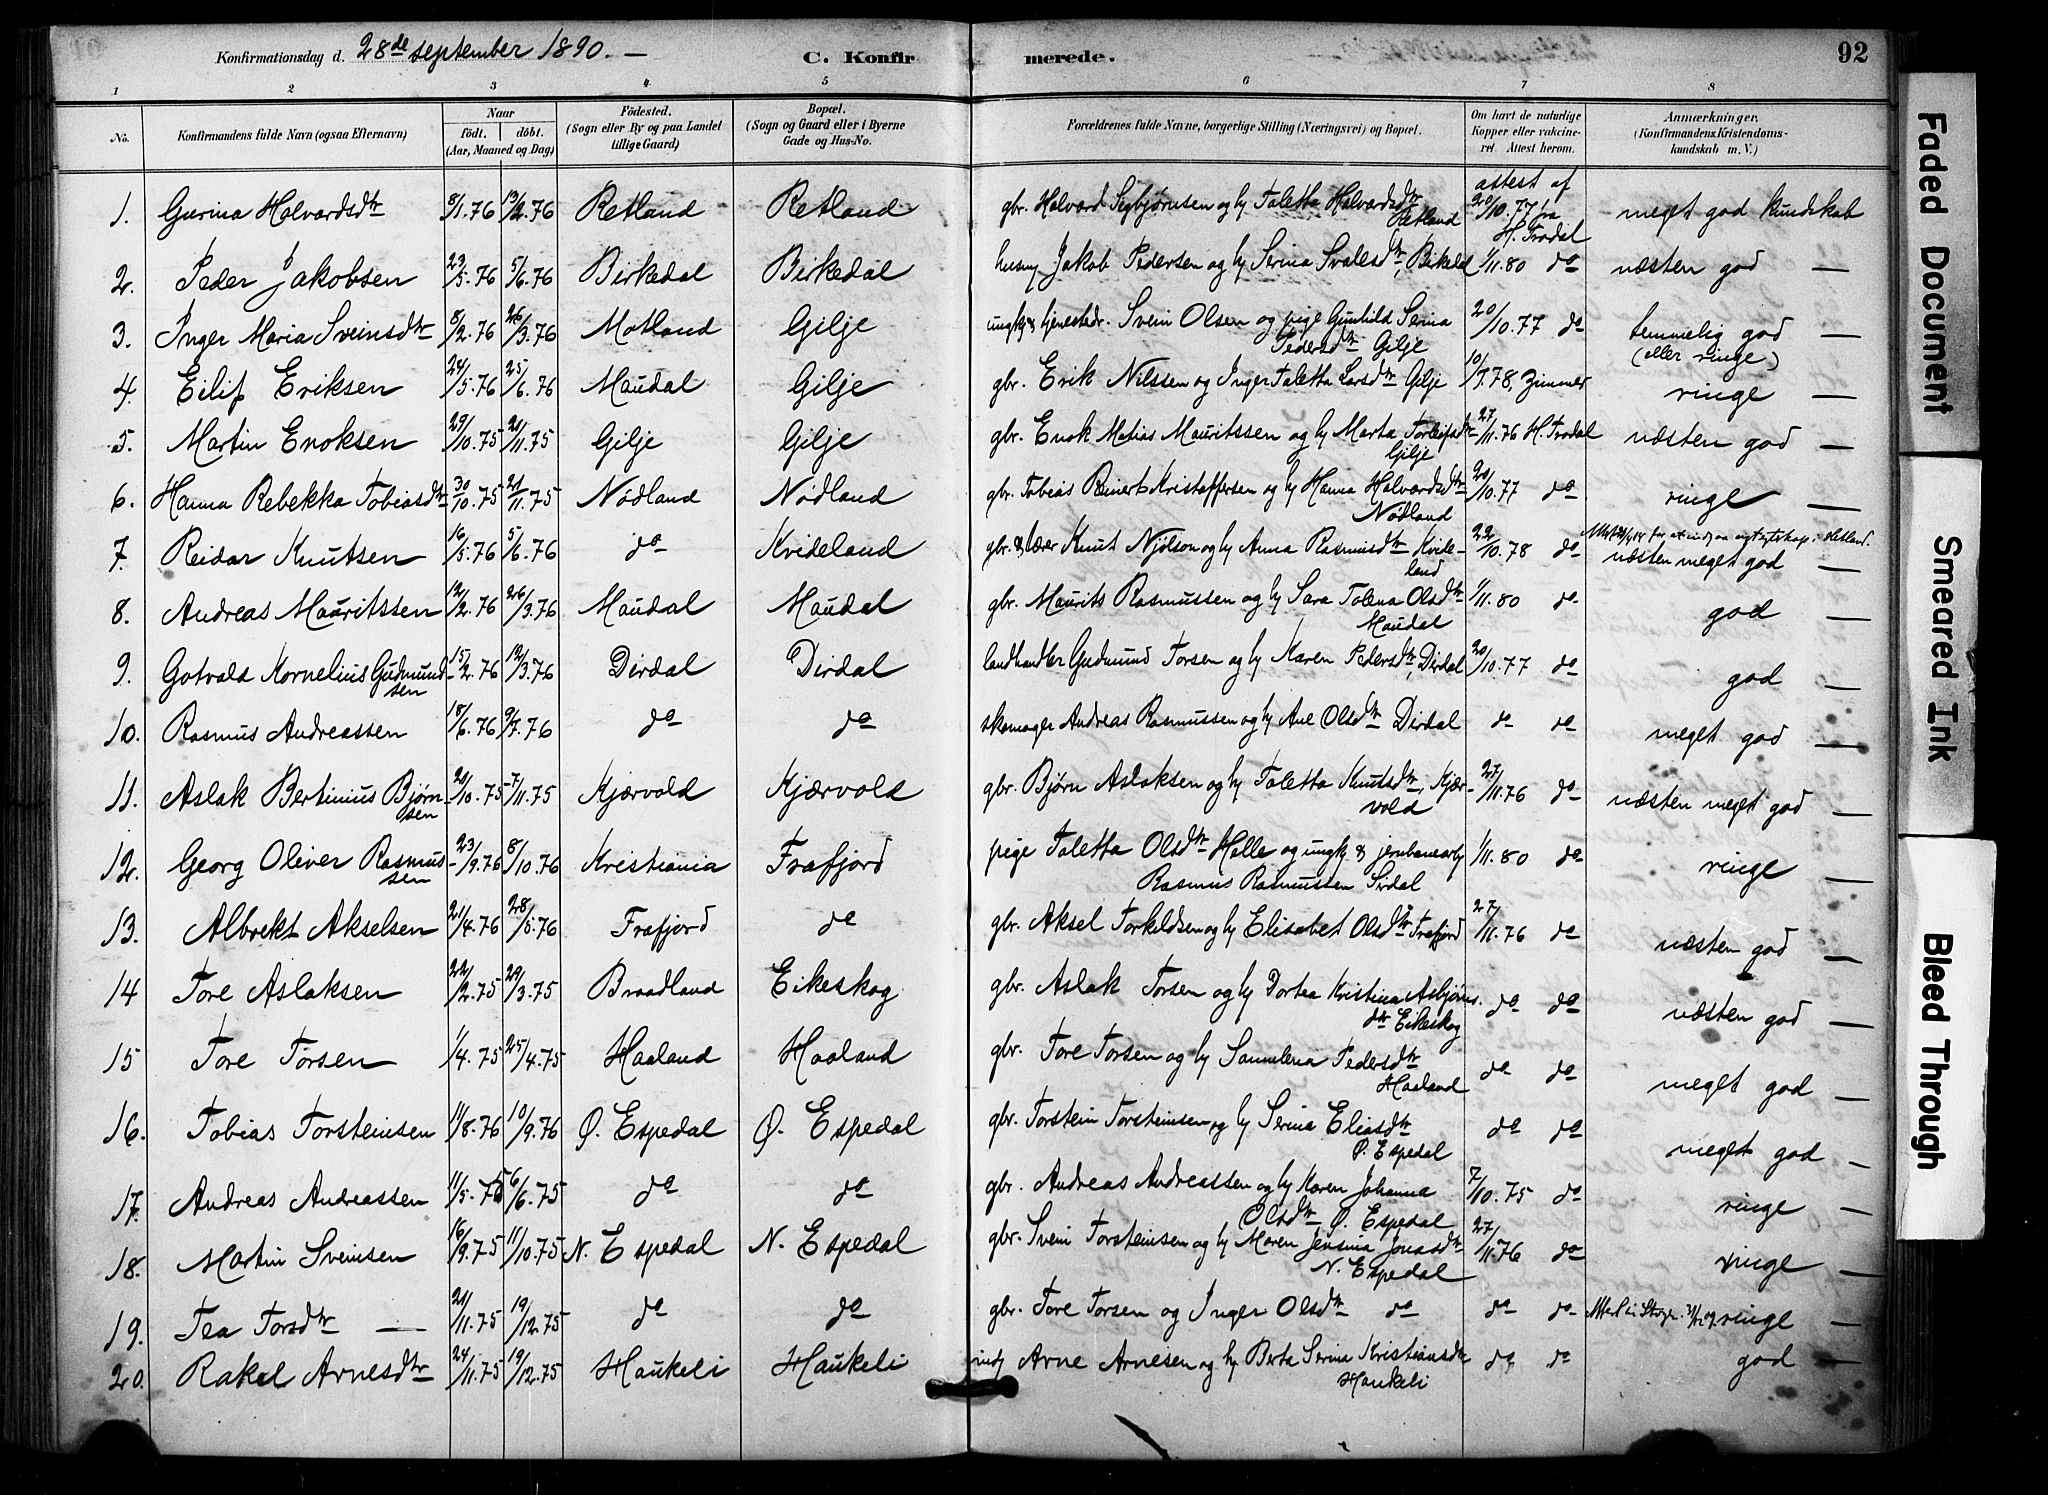 Konfirmationsdag d. 28de september 1890. —
C. Konfirmerede.
92
1 2 3 4 5 6 7 8
No. Konfirmandens fulde Navn (ogsaa Efternavn) Naar født. døbt. (Aar, Maaned og Dag) Födested. (Sogn eller By og paa Landet tillige Gaard) Bopæl. (Sogn og Gaard eller i Byerne Gade og Hus-No. Forældrenes fulde Navne, borgerlige Stilling (Næringsvei) og Bopæl. Om havt de naturlige Kopper eller vakcineret. Attest herom. Anmærkninger. (Konfirmandens Kristendomskundskab m. V.)
1. Gurina Halvardsdtr 8/1.76 13/2.76 Retland Retland gbr. Halvard Sigbjørnsen og hy Taletta Halvardsdtr Retland attest af 20/10.77 fra H. Trodal meget god kundskab
2. Peder Jakobsen 23/5.76 5/6.76 Birkedal Birkedal husm Jakob Pedersen og hy Serina Svalesdtr, Birkedal 1/11.80 do næsten god —
3. Inger Maria Sveinsdtr 8/2.76 26/3.76 Motland Gilje ungk & tjenestedr. Svein Olsen og pige Gunhild Serina Pedersdtr Gilje 20/10.77 do temmelig god (eller ringe) —
4. Eilif Eriksen 24/5.76 25/6.76 Maudal Gilje gbr. Erik Nilssen og Inger Taletta Larsdtr Gilje 10/7.78, Zimmer ringe —
5. Martin Enoksen 29/10.75 21/11.75 Gilje Gilje gbr. Enok Matias Mauritssen og hy Marta Torleifsdtr Gilje 27/11.76 H. Trodal næsten god —
6. Hanna Rebekka Tobiasdtr 30/10.75 21/11.75 Nødland Nødland gbr. Tobias Reinert Kristoffersen og hy Hanna Halvardsdtr Nødland 20/10.77 do ringe —
7. Reidar Knutsen 16/5.76 5/6.76 do Kvideland gbr. & lærer Knut Njølson og hy Anna Rasmusdtr Kvideland 22/10.78 do næsten meget god —
8. Andreas Mauritssen 12/2.76 26/3.76 Maudal Maudal gbr. Maurits Rasmussen og hy Sara Tolena Olsdtr Maudal 1/11.80 do god —
9. Gotvald Kornelius Gudmundsen 15/2.76 12/3.76 Dirdal Dirdal landhandler Gudmund Torsen og hy Karen Pedersdtr, Dirdal 20/10.77 do god —
10. Rasmus Andreassen 18/6.76 9/7.76 do do skomager Andreas Rasmussen og hy Ane Olsdtr Dirdal do do meget god —
11. Aslak Bertinius Bjørnsen 20/10.75 7/11.75 Kjærvold Kjærvold gbr. Bjørn Aslaksen og hy Taletta Knutsdtr, Kjærvold 27/11.76 do næsten meget god —
12. Georg Oliver Rasmussen 23/9.76 8/10.76 Kristiania Frafjord pige Taletta Olsdtr Helle og ungk & jernbanearb Rasmus Rasmussen Sirdal 1/11.80 do ringe —
13. Albrekt Akselsen 21/4.76 28/5.76 Frafjord do gbr. Aksel Torkildsen og hy Elisabet Olsdtr Frafjord 27/11.76 do næsten god —
14 Tore Aslaksen 22/2.75 29/3.75 Braadland Eikeskog gbr. Aslak Torsen og hy Dortea Kristina Asbjørnsdtr Eikeskog do do næsten god —
15 Tore Torsen 1/4.75 25/4.75 Haaland Haaland gbr. Tore Torsen og hy Sannelena Pedersdtr Haaland do do meget god —
16. Tobias Torsteinsen 11/8.76 10/9.76 Ø. Espedal Ø. Espedal gbr. Torstein Torsteinsen og hy Serina Eliasdtr Ø. Espedal do do meget god —
17. Andreas Andreassen 11/5.75 6/6.75 do do gbr. Andreas Andreassen og hy Karen Johanna Olsdtr Ø. Espedal 7/10.75 do ringe —
18. Martin Sveinsen 16/9.75 11/10.75 N. Espedal N. Espedal gbr. Svein Torsteinsen og hy Maren Jensina Jonasdtr N. Espedal 27/11.76 do ringe —
19. Tea Torsdtr — 21/11.75 19/12.75 do do gbr. Tore Torsen og Inger Olsdtr do do do ringe —
20. Rakel Arnesdtr 24/11.75 19/12.75 Haukeli Haukeli Arne Arnesen og hy Berta Serina Kristiansdtr Haukeli do do god —
Faded Document
Smeared Ink
Bleed Through